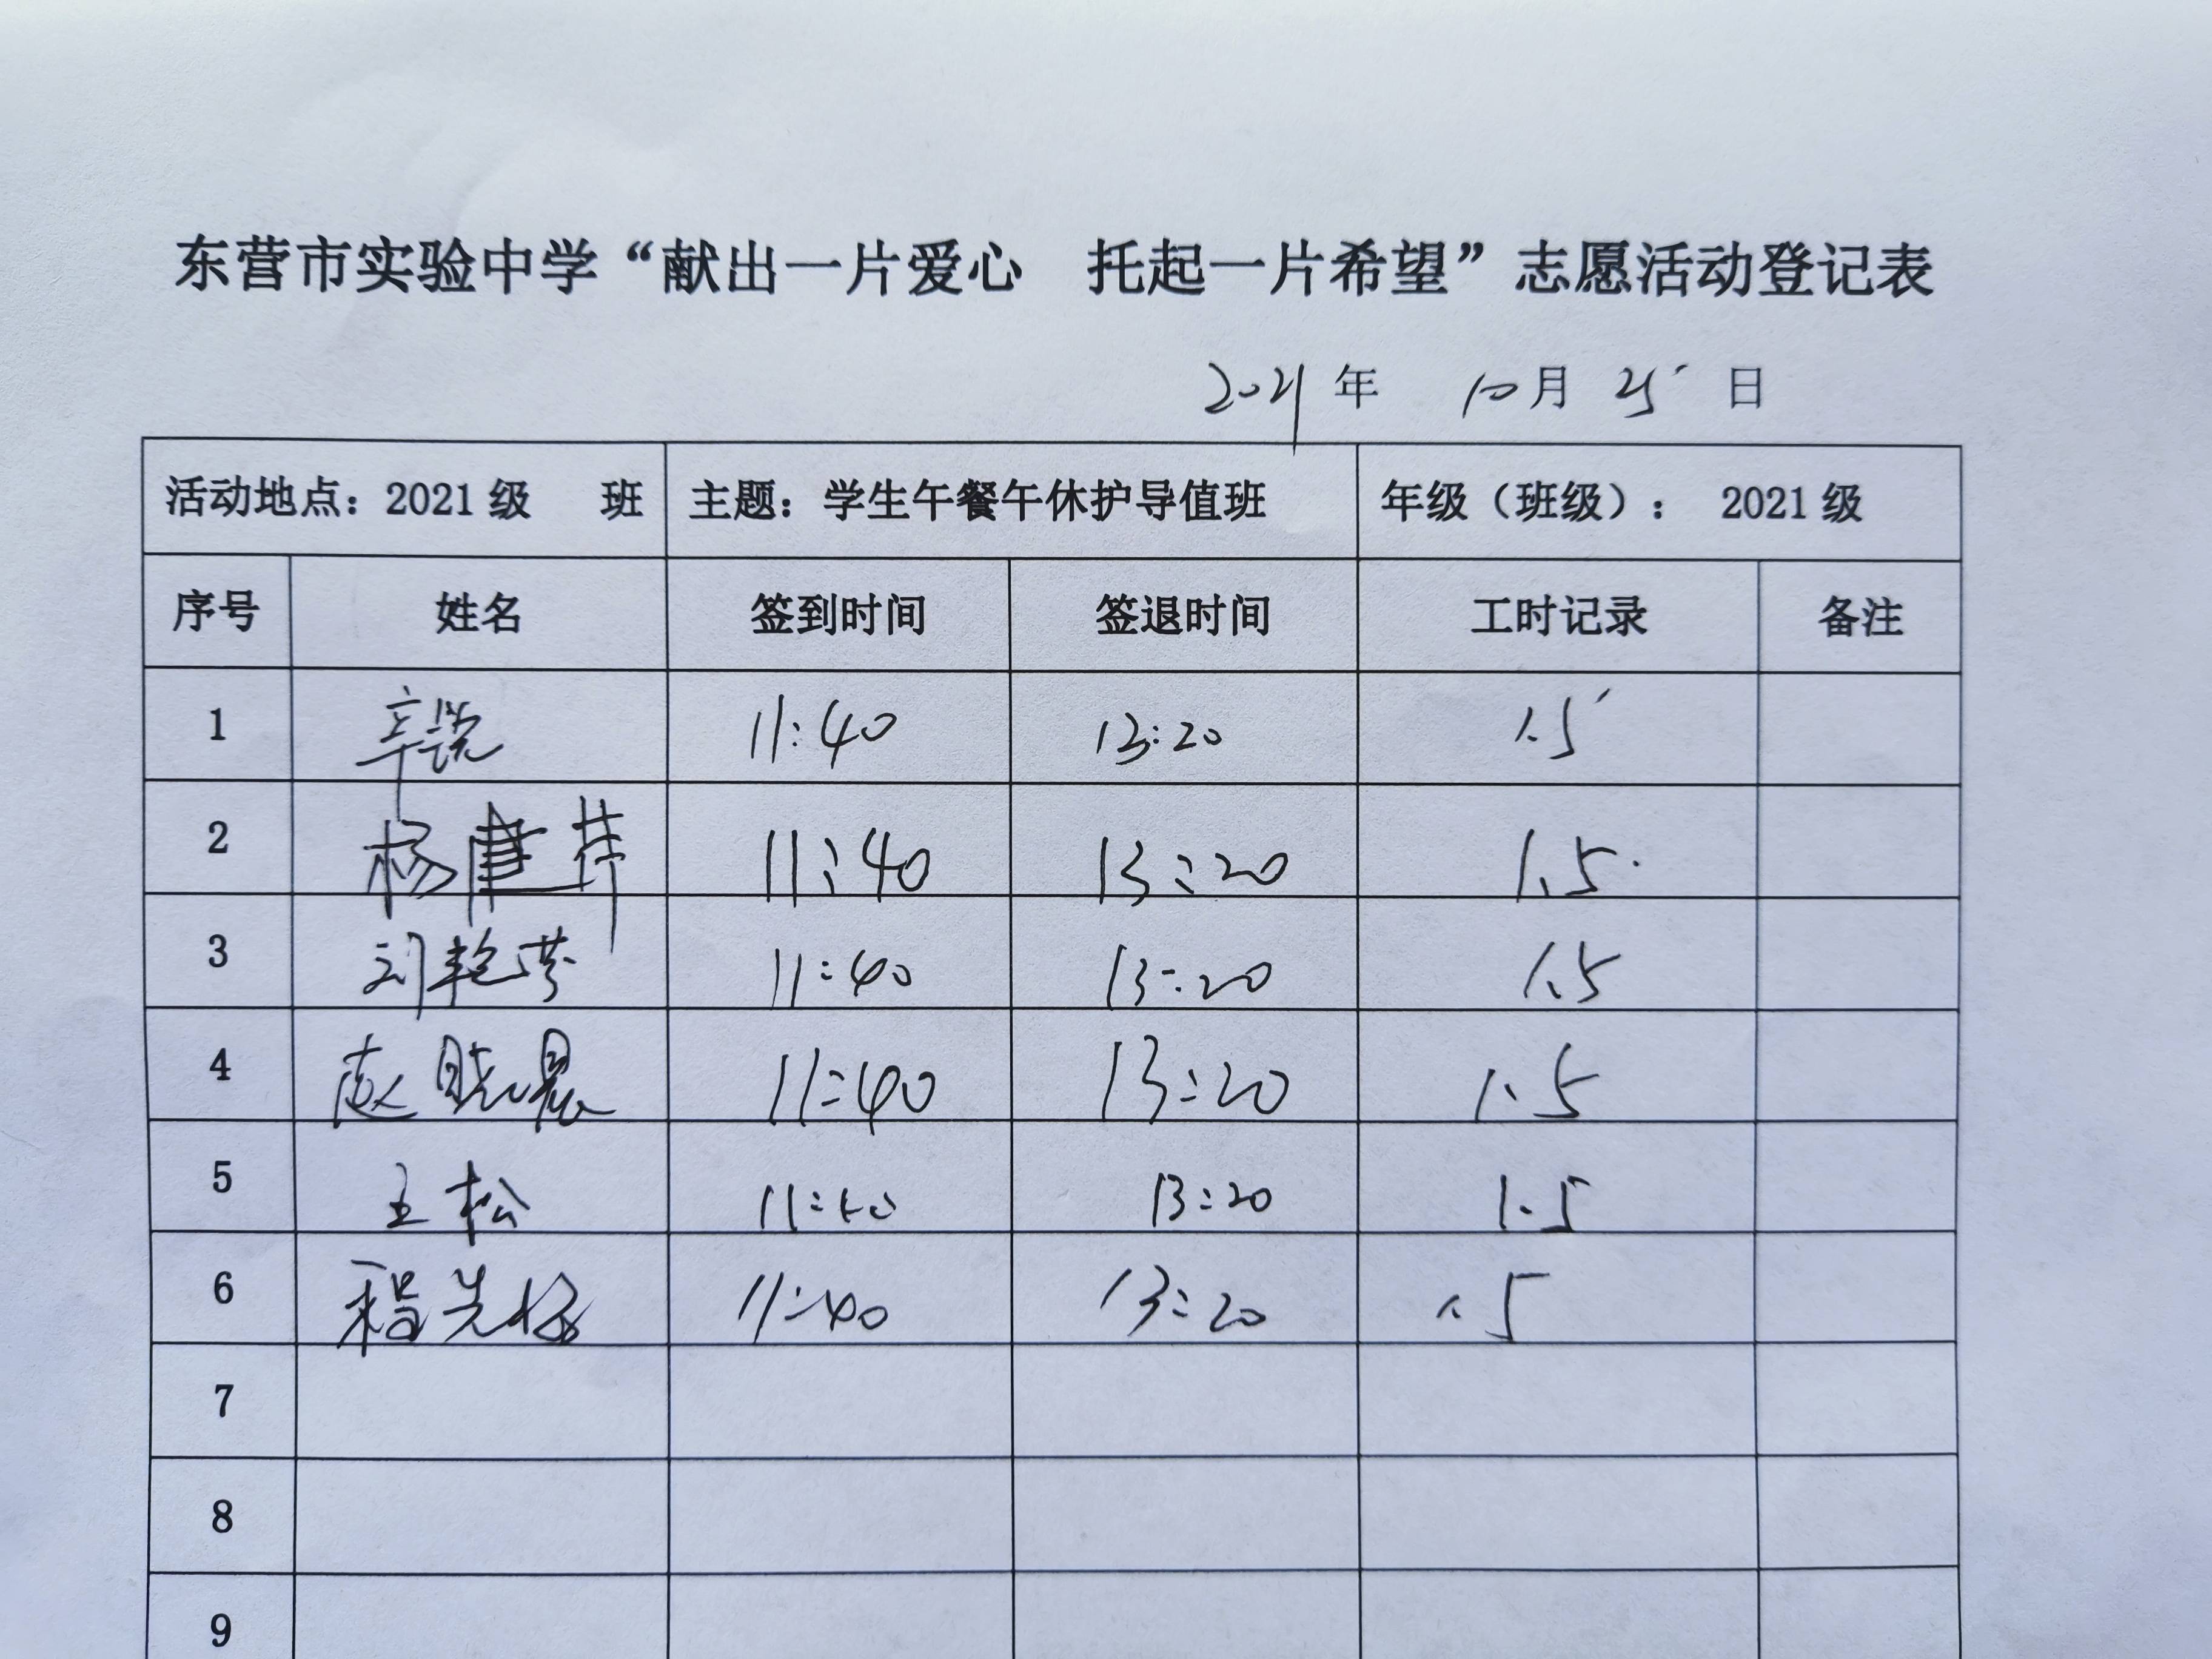 东营市实验中学“献出一片爱心 托起一片希望”志愿活动登记表
2021年 10月 25日
活动地点：2021级 班 主题：学生午餐午休护导值班 年级（班级）： 2021级
序号 姓名 签到时间 签退时间 工时记录 备注
1 辛锐 11:40 13:20 1.5
2 杨建芹 11:40 13:20 1.5
3 刘艳芬 11:40 13:20 1.5
4 赵晓晨 11:40 13:20 1.5
5 王松 11:40 13:20 1.5
6 程先 11:40 13:20 1.5
7
8
9